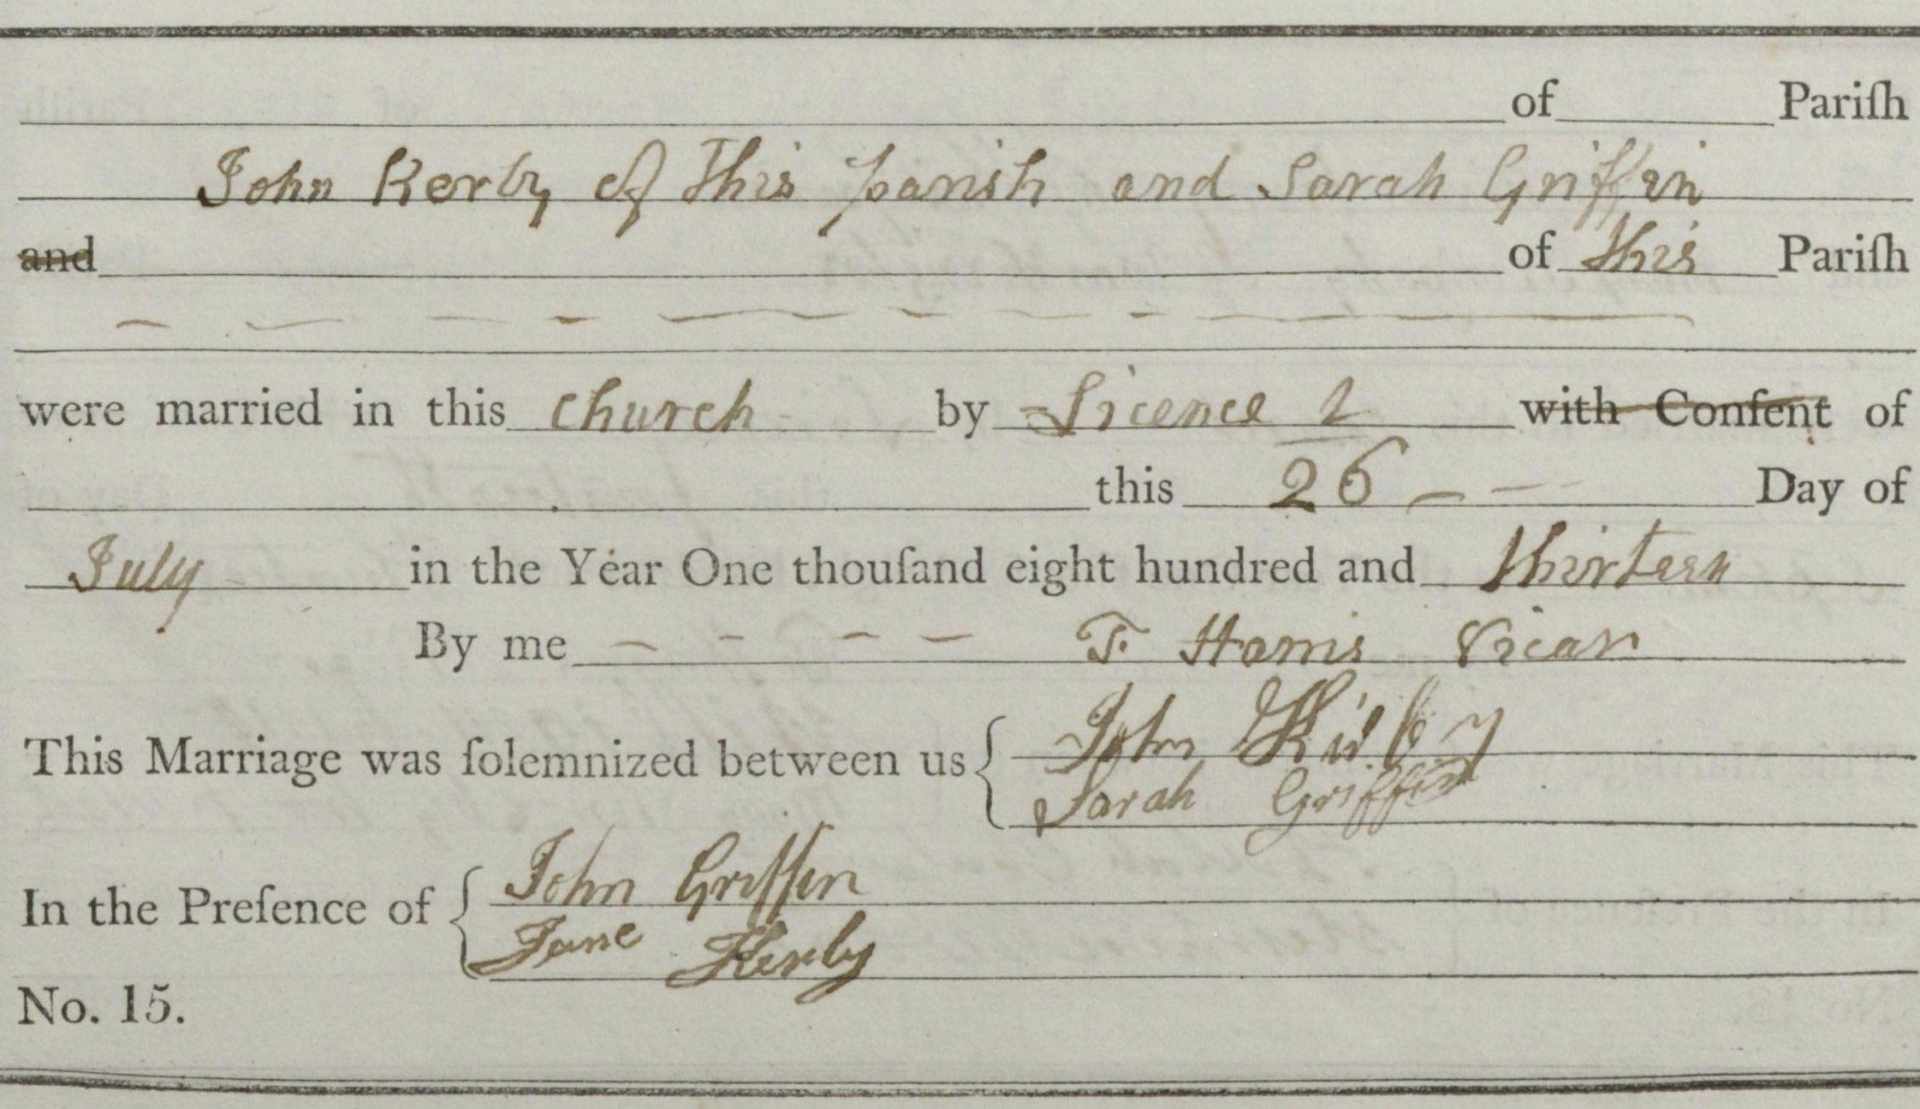 of Pariſh
John Kerby of This parish and Sarah Griffin
and of this Pariſh
were married in this Church by Licence with Conſent of
this 26 Day of
July in the Year One thouſand eight hundred and thirteen
By me T. Harris Vicar
This Marriage was ſolemnized between us John Kirby
Sarah Griffin
In the Preſence of John Griffin
Jane Kerby
No. 15.